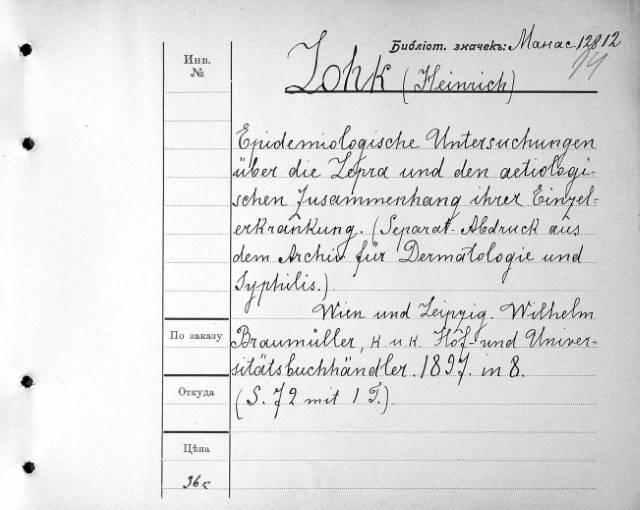 Библіот. значекъ: Манас 12812
Инв.
№
Lohk (Heinrich)
Epidemiologische Untersuchungen
über die Lepra und den aetiologi-
schen Zusammenhang ihrer Einzel-
erkrankung. (Separat-Abdruck aus
dem Archiv für Dermatologie und
Syphilis.)
Wien und Leipzig. Wilhelm
Braumüller, k. u. k. Hof- und Univer-
sitätsbuchhändler. 1897. in 8.
(S. 72 mit 1 T.).
По заказу
Откуда
Цѣна
36 к